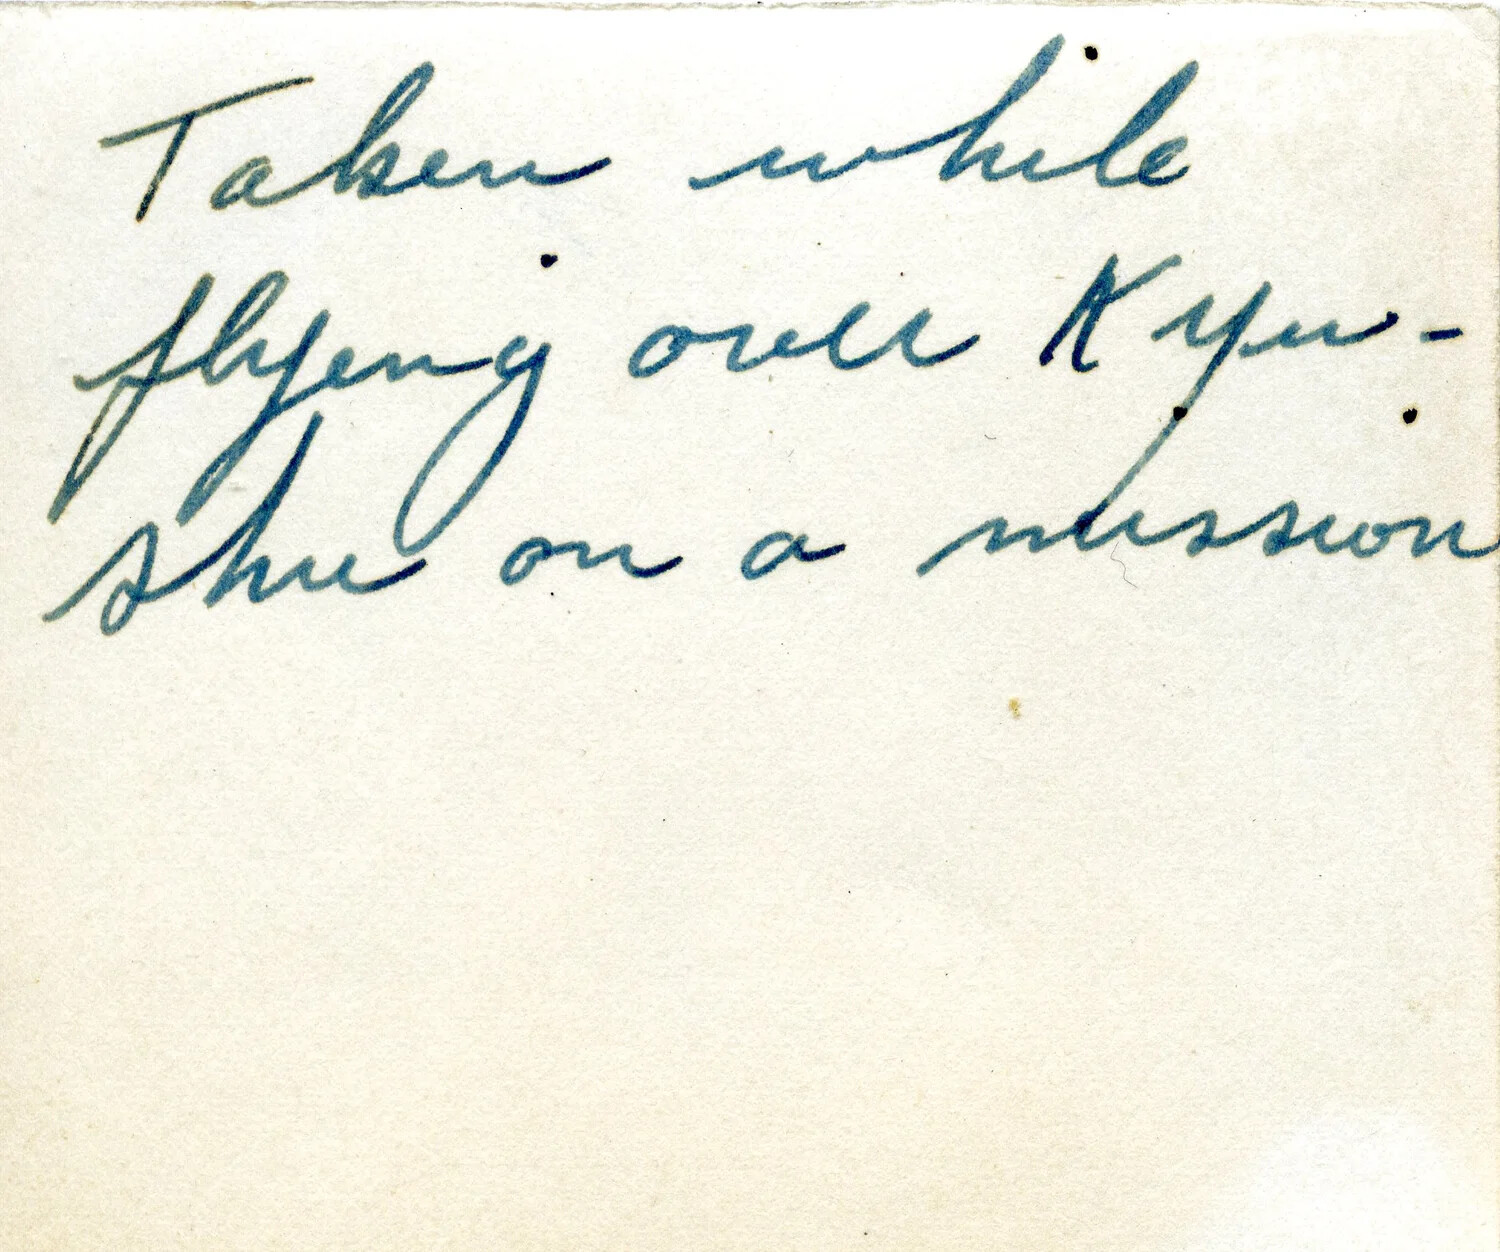 Taken while
flying over Kyu-
shu on a mission